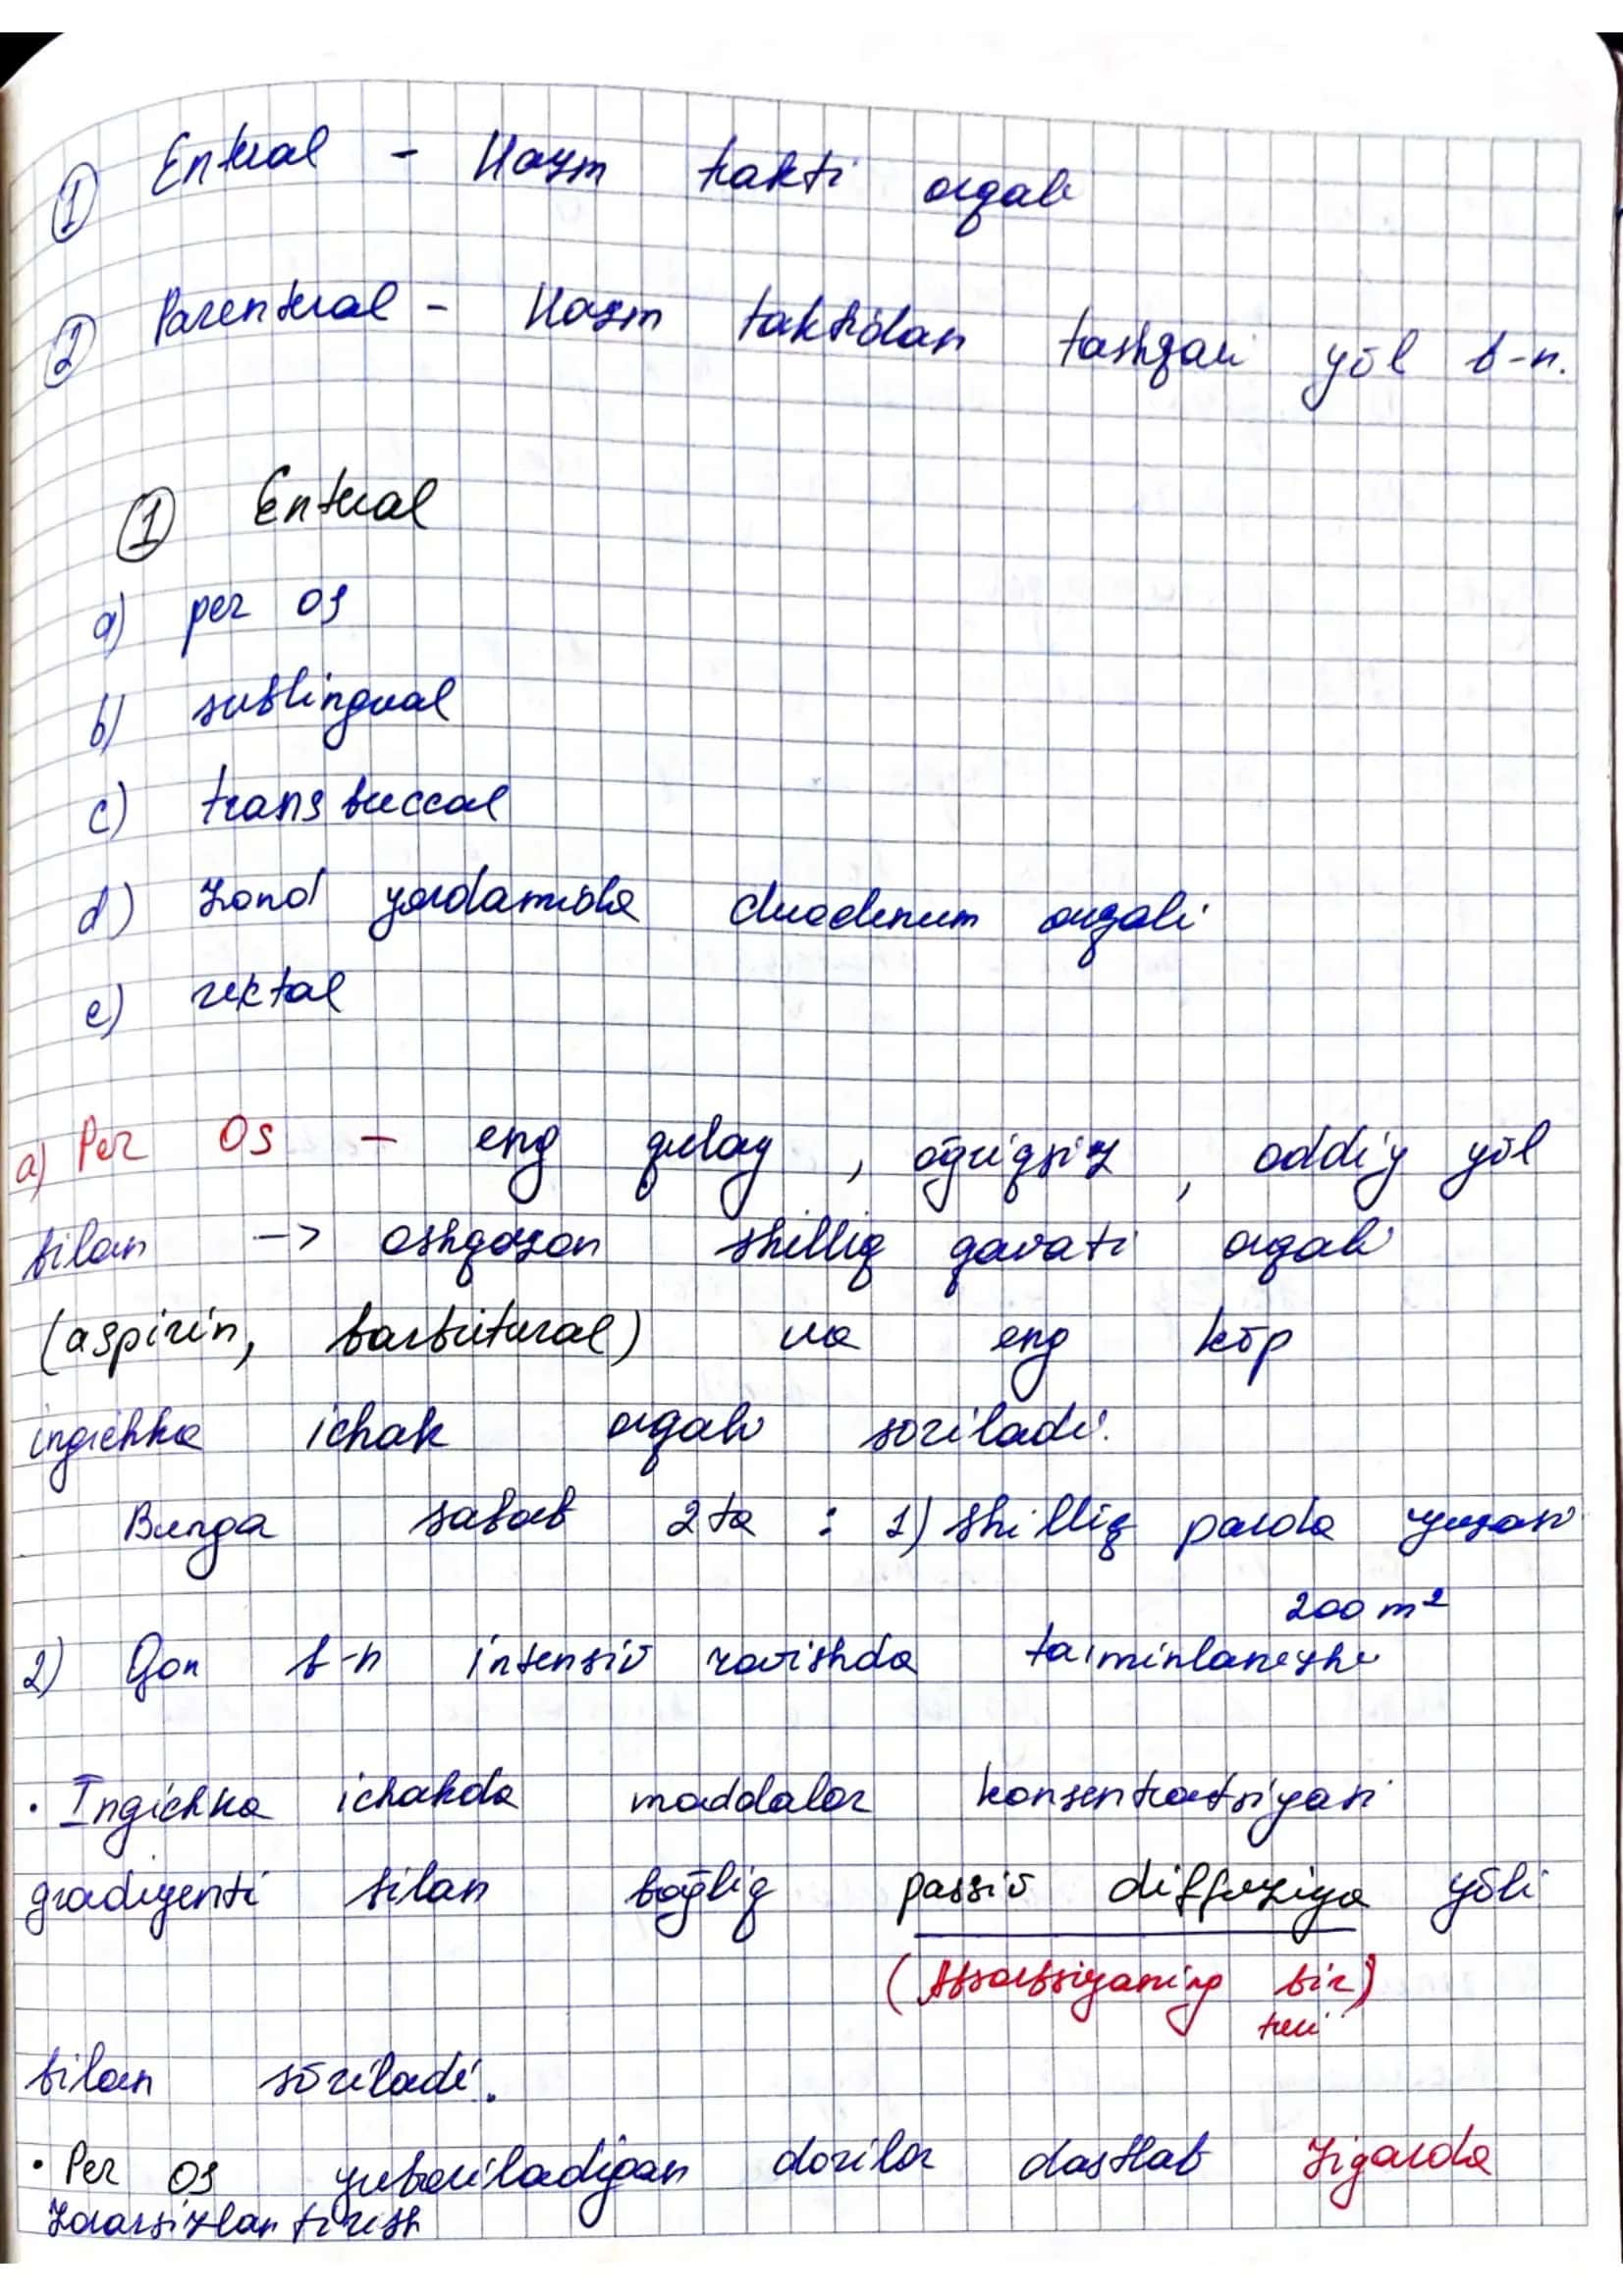 ① Enteral - Hazm trakti orqali
② Parenteral - Hazm taktidan tashqari yōl b-n.
① Enteral
a) per os
b) sublingual
c) trans buccal
d) Zond yordamida duodenum orqali
e) rektal
a) Per OS - eng qulay, oğriqsiz, oddiy yōl
bilan -> oshqozon shilliq qavati orqali
(aspirin, barbitural) va eng kōp
ingichka ichak orqali soriladi.
Bunga sabab 2 ta : 1) shilliq parda yuzasi
200 m²
2) Qon b-n intensiv ravishda ta'minlanishi
• Ingichka ichakda moddalar konsentratsiyasi
gradiyenti bilan boğliq passiv diffuziya yōli
(Absorbsiyaning bir)
turi
bilan sōriladi.
• Per OS yuboriladigan dorilar dastlab Jigarda
Zararsizlantirish